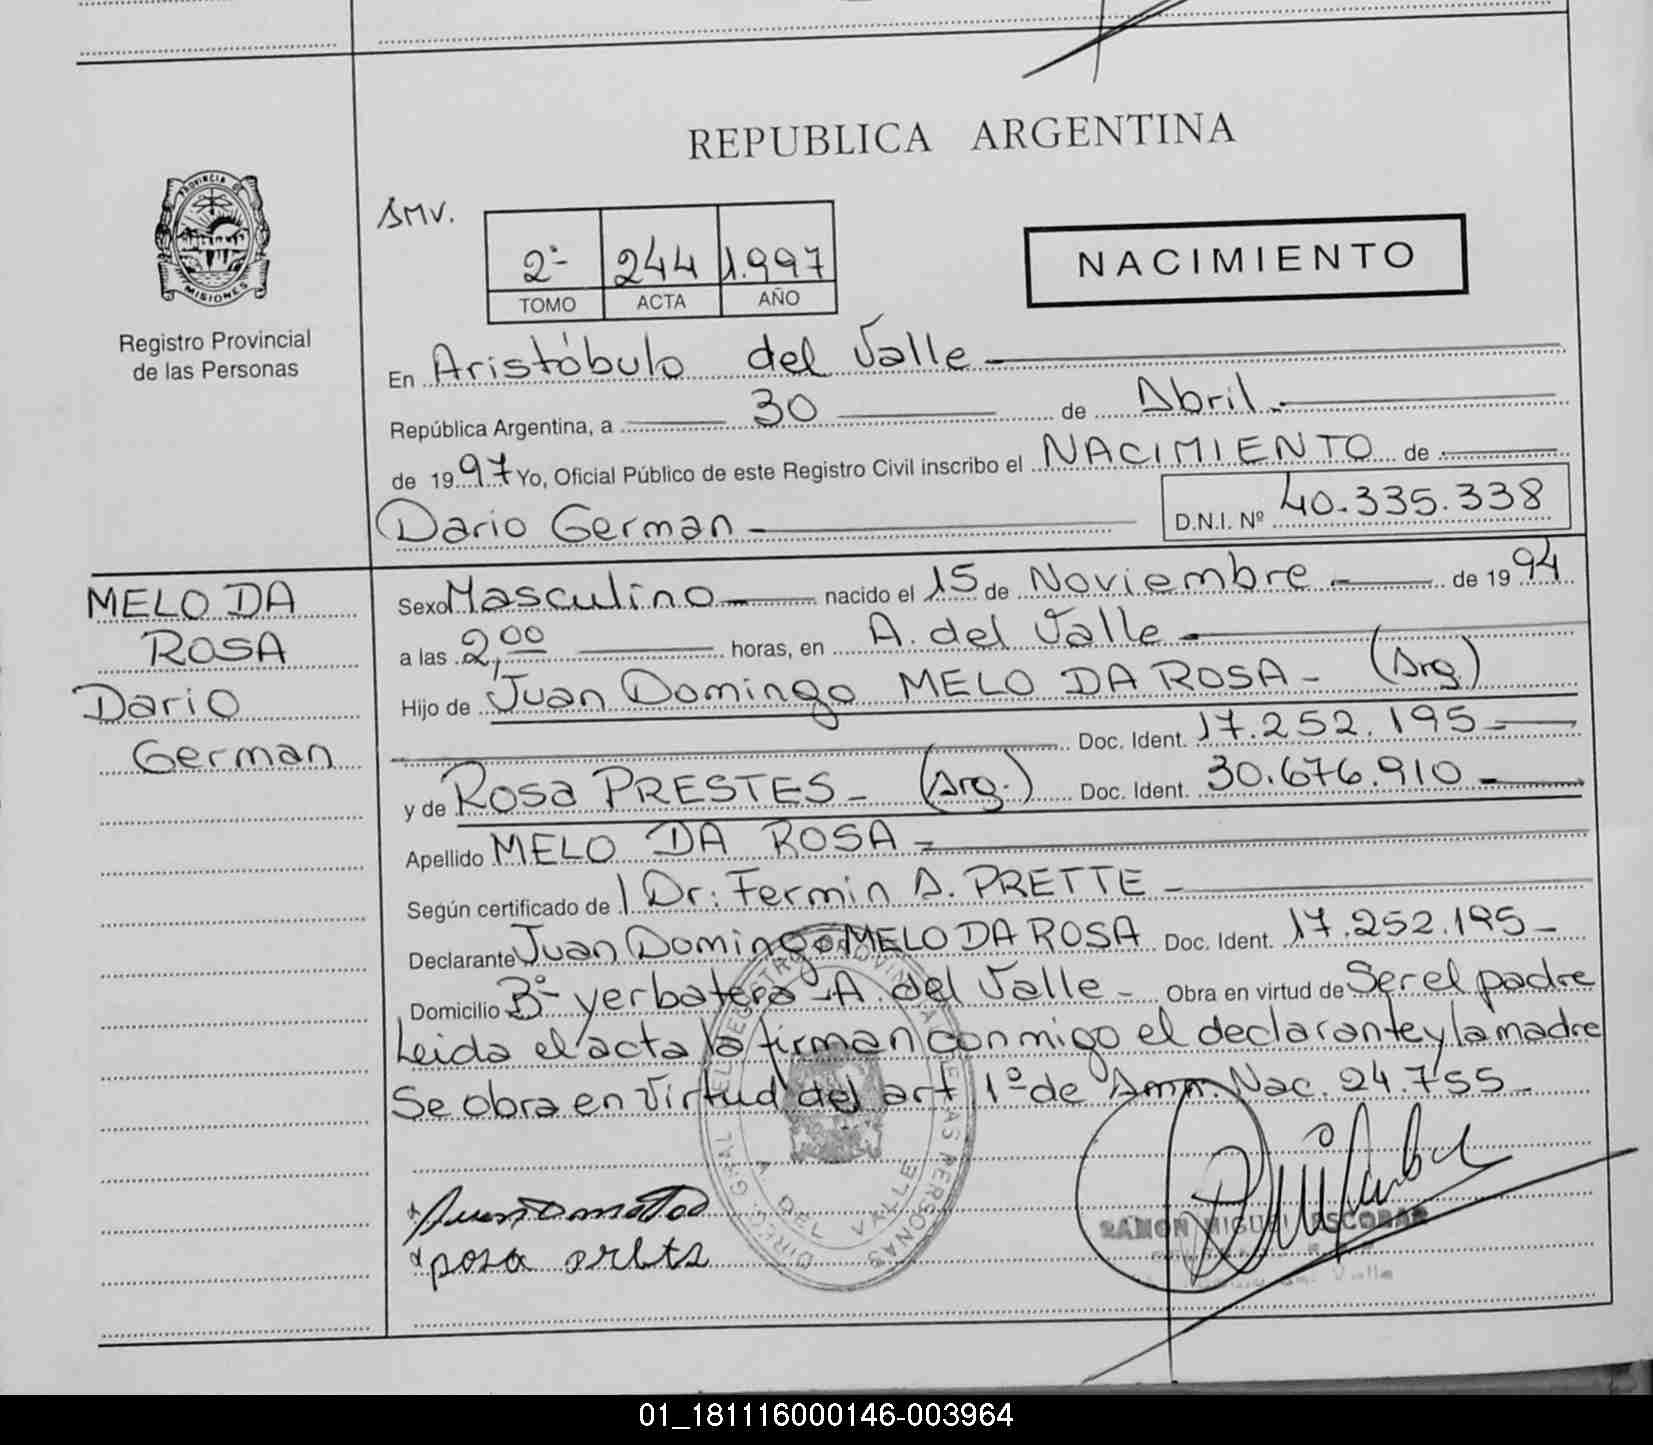 REPUBLICA ARGENTINA
SMV.
2º 244 1.997
TOMO ACTA AÑO
NACIMIENTO
PROVINCIA DE
MISIONES
Registro Provincial
de las Personas
En Aristóbulo del Valle
República Argentina, a 30 de Abril.
de 1997 Yo, Oficial Público de este Registro Civil inscribo el NACIMIENTO de
Dario German D.N.I. Nº 40.335.338
MELO DA
ROSA
Dario
German
Sexo Masculino nacido el 15 de Noviembre de 1994
a las 2,00 horas, en A. del Valle
Hijo de Juan Domingo MELO DA ROSA - (Arg.)
Doc. Ident. 17.252.195
y de Rosa PRESTES - (Arg.) Doc. Ident. 30.676.910
Apellido MELO DA ROSA -
Según certificado de Dr: Fermin A. PRETTE -
Declarante Juan Domingo MELO DA ROSA Doc. Ident. 17.252.195 -
Domicilio Bº yerbatero - A. del Valle - Obra en virtud de Ser el padre
Leida el acta la firman conmigo el declarante y la madre
Se obra en virtud del art 1º de Amn. Nac. 24.755 -
DIREC. GRAL. DEL REGISTRO PROVINCIAL DE LAS PERSONAS
A. DEL VALLE
RAMON MIGUEL ESCOBAR
del Valle
01_181116000146-003964